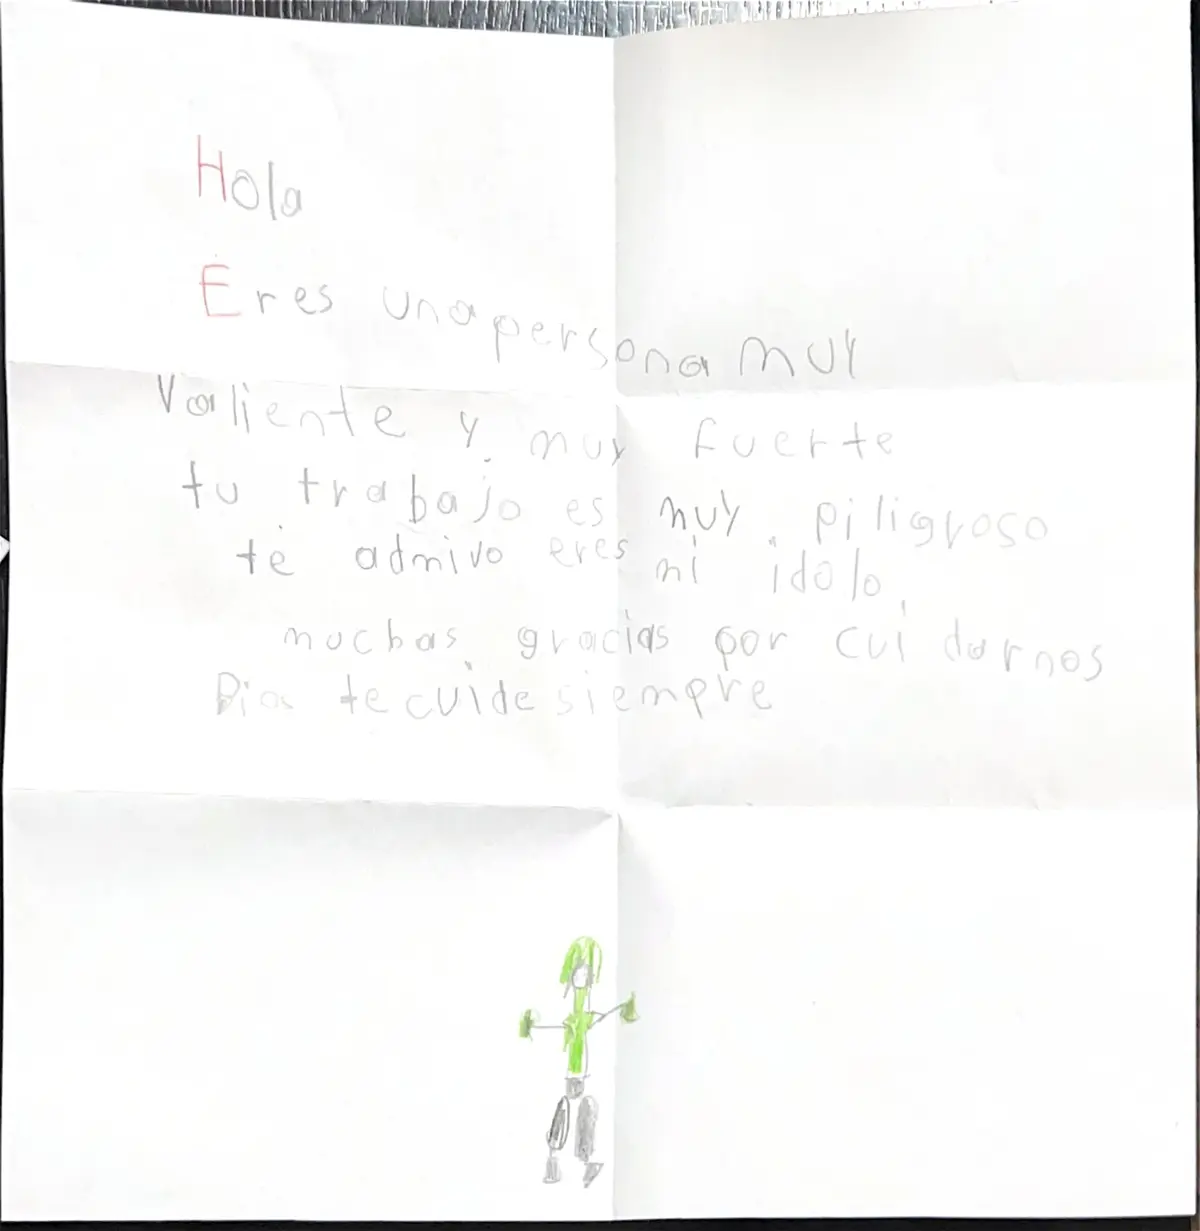 Hola
Eres una persona muy
Valiente y muy fuerte
tu trabajo es muy piligroso
te admiro eres mi idolo,
muchas gracias por cuidarnos
Dios te cuide siempre